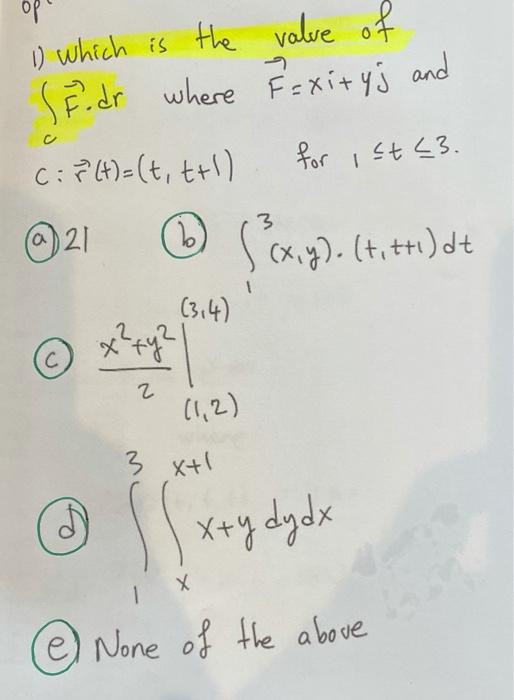 op
1) which is the value of
∫_C F⃗.dr where F⃗=xi+yj and
C: r⃗(t)=(t, t+1) for 1≤t≤3.
ⓐ 21 ⓑ ∫_1^3 (x,y).(t,t+1)dt
ⓒ (x²+y²)/2 |_(1,2)^(3,4)
ⓓ ∫_1^3 ∫_x^(x+1) x+y dydx
ⓔ None of the above